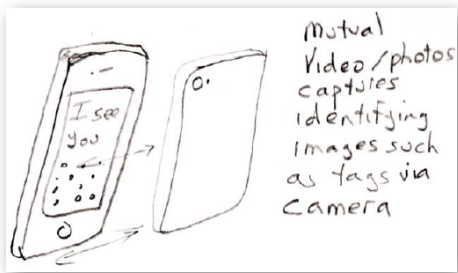 I see
you
Mutual
Video/photos
captures
identifying
images such
as tags via
camera